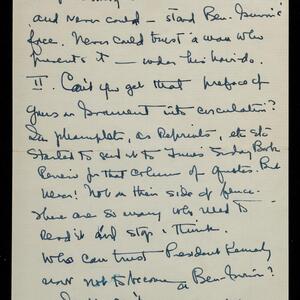 and never could – stand Ben-Gurion's
face. Never could trust a man who
presents it – under his hairdo.
II. Can't you get that preface of
yours in Ironment into circulation?
In phamplets, as Reprints, etc etc
Started to send it to Times Sunday Book
Review for that column of quotes. But
never! Not on their side of fence.
There are so many who need to
read it and stop & think.
Who can trust President Kennedy
now not to become a Ben-Gurion?